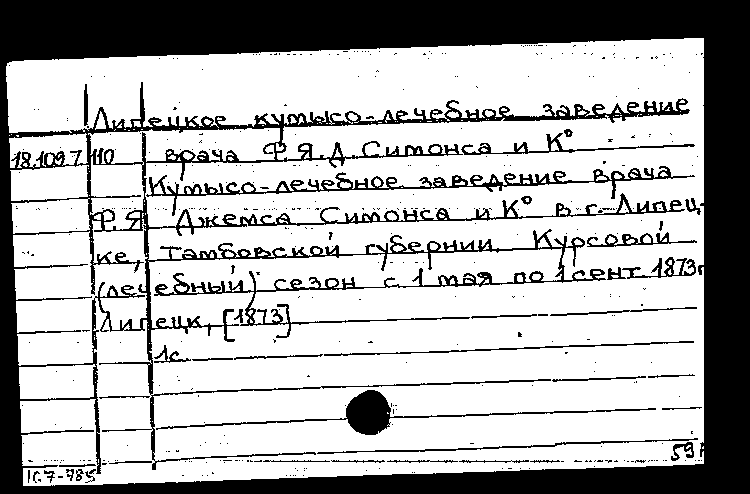 Липецкое кумысо-лечебное заведение
18.109.7.110 врача Ф.Я.Д. Симонса и К°
Кумысо-лечебное заведение врача
Ф.Я Джемса Симонса и К° в г. Липец-
ке, Тамбовской губернии. Курсовой
(лечебный) сезон с 1 мая по 1 сент 1873г
Липецк, [1873]
1с.
59